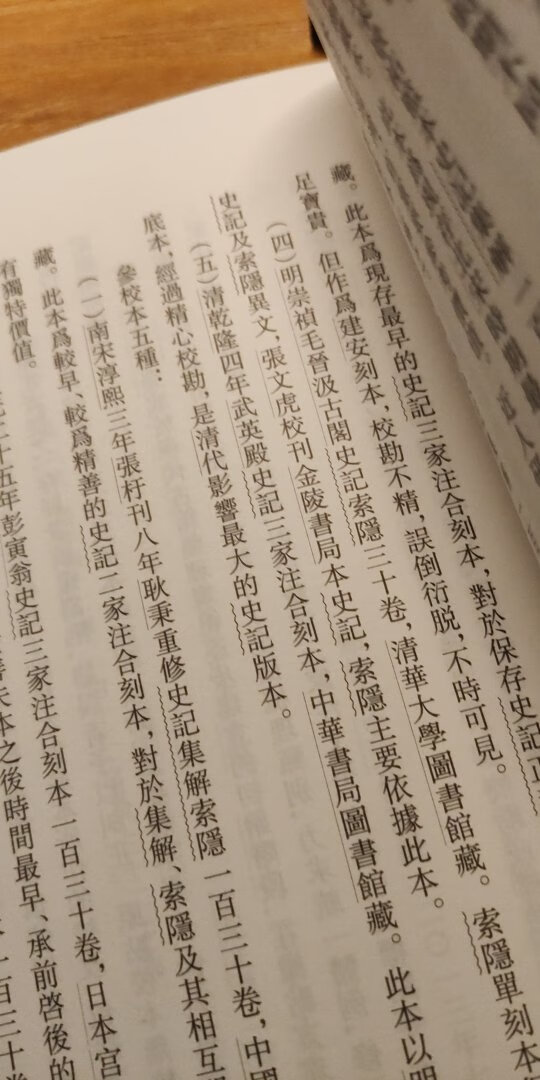 藏。此本爲現存最早的史記三家注合刻本，對於保存史記正
足寶貴。但作爲建安刻本，校勘不精，誤倒衍脱，不時可見。
（四）明崇禎毛晉汲古閣史記索隱三十卷，清華大學圖書館藏。索隱單刻本
史記及索隱異文，張文虎校刊金陵書局本史記，索隱主要依據此本。
（五）清乾隆四年武英殿史記三家注合刻本，中華書局圖書館藏。此本以明
底本，經過精心校勘，是清代影響最大的史記版本。
參校本五種：
（一）南宋淳熙三年張杅刊八年耿秉重修史記集解索隱一百三十卷，中國
藏。此本爲較早、較爲精善的史記二家注合刻本，對於集解、索隱及其相互
有獨特價值。
十五年彭寅翁史記三家注合刻本一百三十卷，日本宮
本之後時間最早、承前啓後的
百三十卷